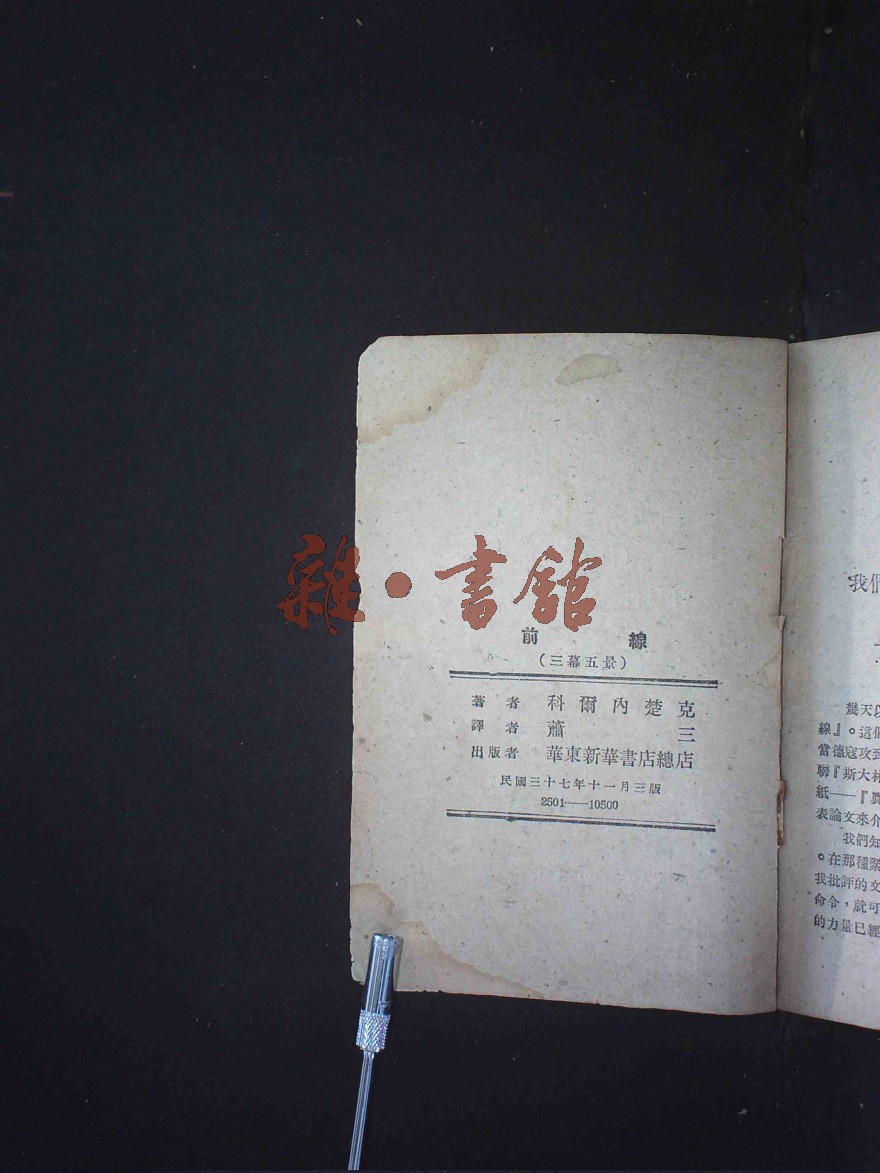 雜·書館
前線
(三幕五景)
著者 科爾內楚克
譯者 蕭三
出版者 華東新華書店總店
民國三十七年十一月三版
2501——10500
我們
幾天以
線』。這個
當德寇攻到
聯『斯大林
紙——『眞
表論文來介
我們知
。在那種緊
我批評的文
命令,就可
的力量已經